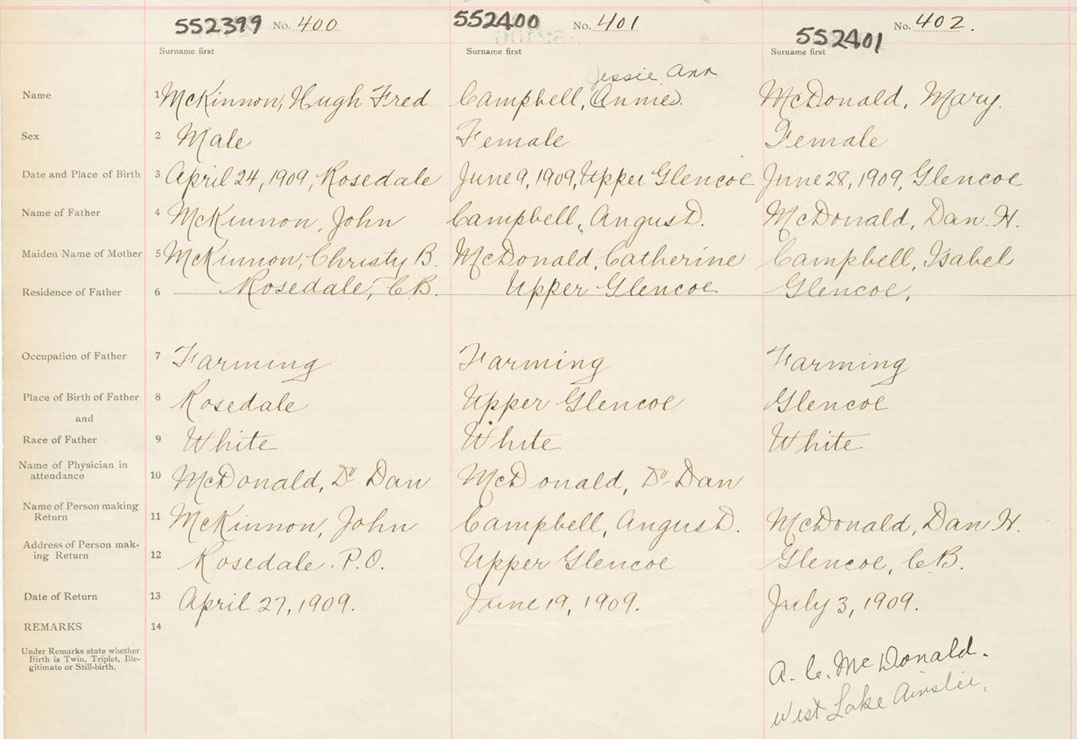 552399 No. 400 552400 No. 401 552401 No. 402.
Surname first Surname first Surname first
Jessie Ann
Name 1 McKinnon, Hugh Fred Campbell, Annie. McDonald, Mary.
Sex 2 Male Female Female
Date and Place of Birth 3 April 24, 1909, Rosedale June 9, 1909, Upper Glencoe June 28, 1909, Glencoe
Name of Father 4 McKinnon, John Campbell, Angus D. McDonald, Dan H.
Maiden Name of Mother 5 McKinnon, Christy B. McDonald, Catherine Campbell, Isabel
Residence of Father 6 Rosedale, C.B. Upper Glencoe Glencoe,
Occupation of Father 7 Farming Farming Farming
Place of Birth of Father 8 Rosedale Upper Glencoe Glencoe
and
Race of Father 9 White White White
Name of Physician in
attendance 10 McDonald, Dr Dan McDonald, Dr Dan
Name of Person making
Return 11 McKinnon, John Campbell, Angus D. McDonald, Dan H.
Address of Person mak-
ing Return 12 Rosedale. P.O. Upper Glencoe Glencoe, C.B.
Date of Return 13 April 27, 1909. June 19, 1909. July 3, 1909.
REMARKS 14
Under Remarks state whether
Birth is Twin, Triplet, Ille-
gitimate or Still-birth.
A. C. McDonald.
West Lake Ainslie.